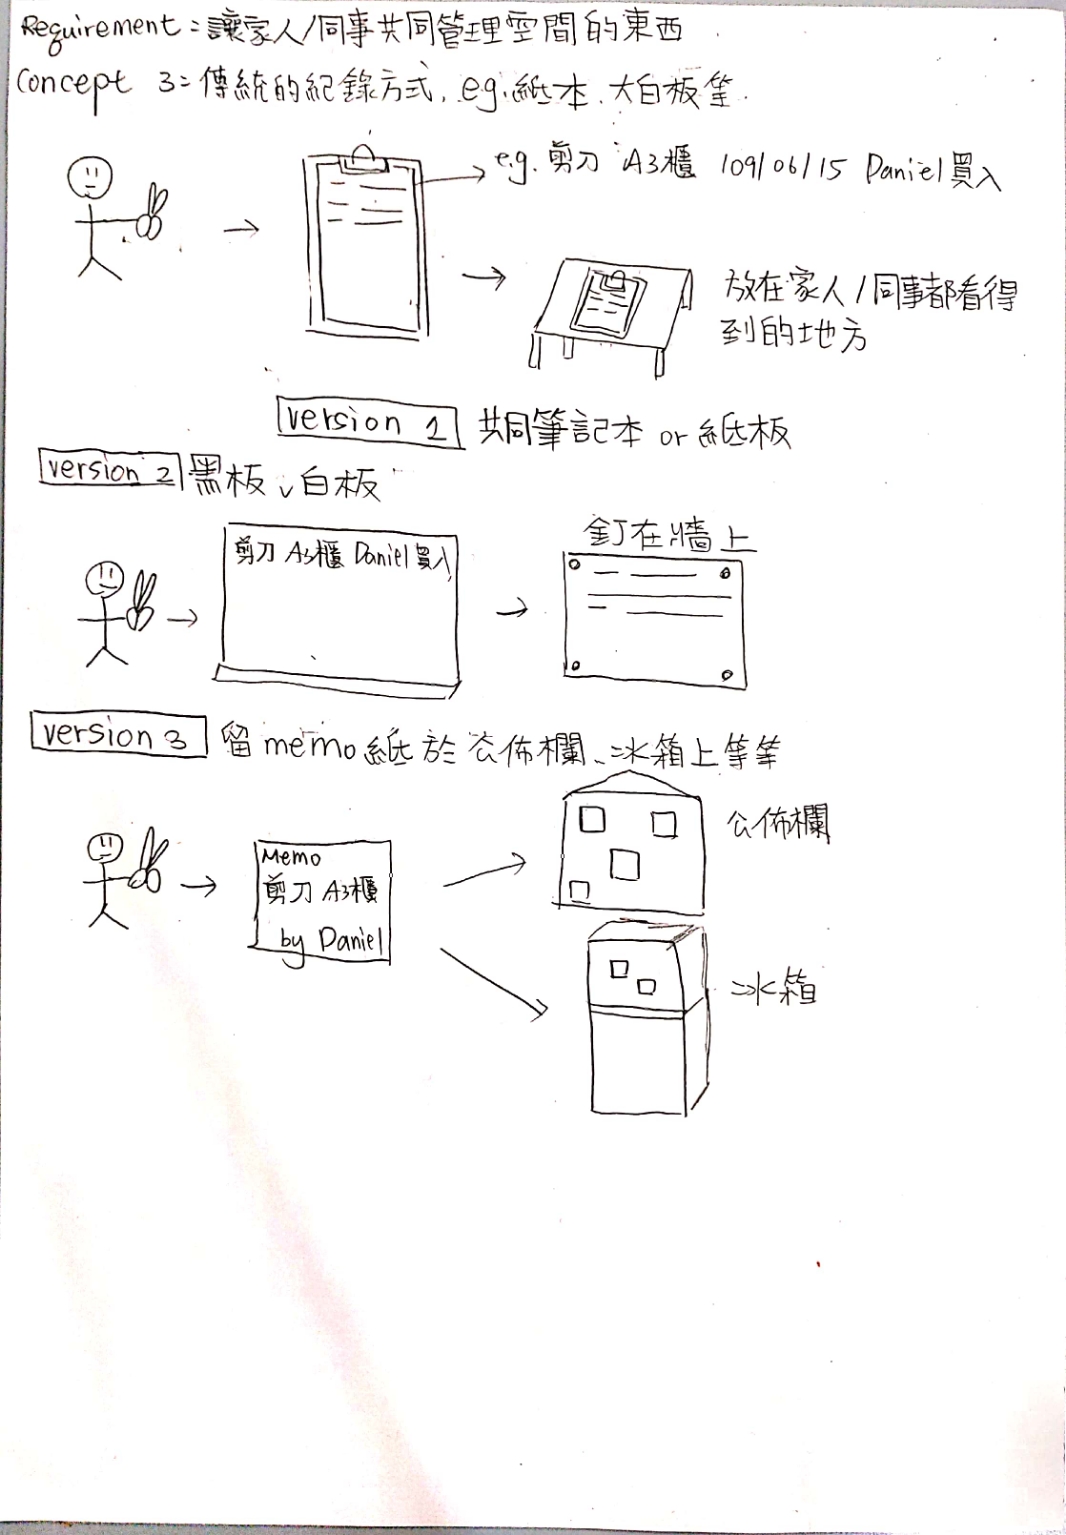 Requirement：讓家人/同事共同管理空間的東西
Concept 3：傳統的紀錄方式, e.g. 紙本、大白板筆.
e.g. 剪刀 A3櫃 109/06/15 Daniel買入
放在家人/同事都看得
到的地方
version 1 共同筆記本 or 紙板
version 2 黑板、白板
剪刀 A3櫃 Daniel買入
釘在牆上
version 3 留memo紙於公佈欄、冰箱上等等
公佈欄
Memo
剪刀 A3櫃
by Daniel
冰箱